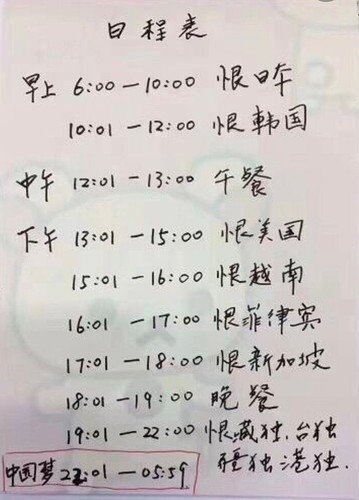 日程表
早上 6:00—10:00 恨日本
10:01—12:00 恨韩国
中午 12:01—13:00 午餐
下午 13:01—15:00 恨美国
15:01—16:00 恨越南
16:01—17:00 恨菲律宾
17:01—18:00 恨新加坡
18:01—19:00 晚餐
19:01—22:00 恨藏独、台独
疆独港独.
中国梦 22:01—05:59